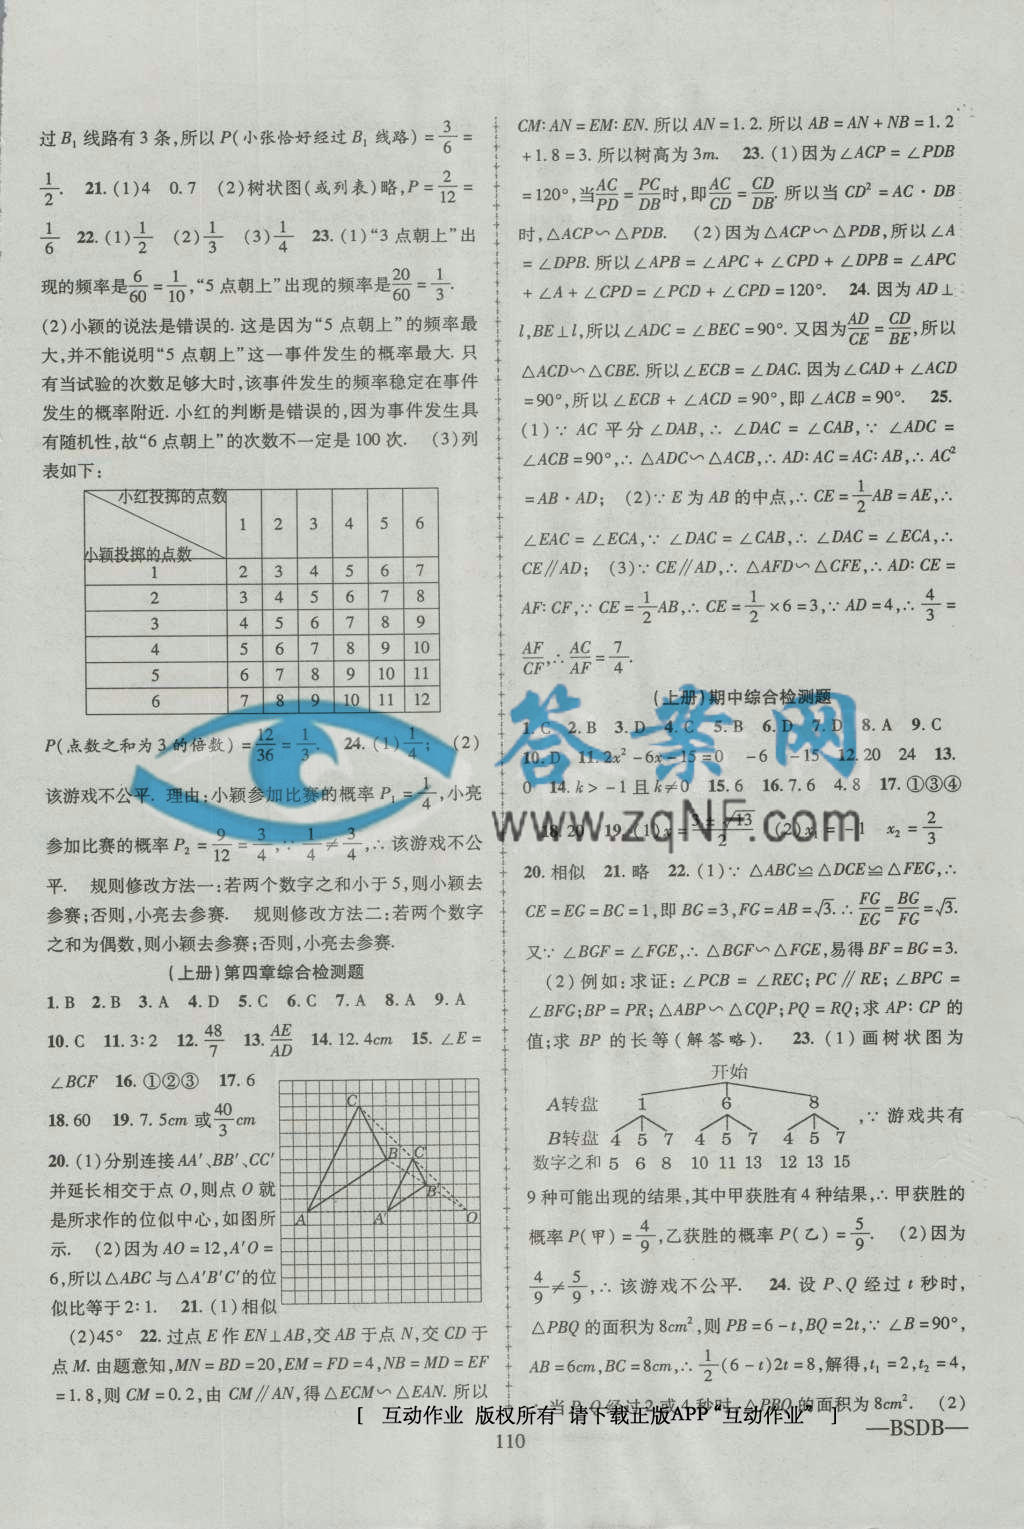 过 B₁ 线路有 3 条,所以 P(小张恰好经过 B₁ 线路) = 3/6 =
1/2. 21. (1)4 0.7 (2)树状图(或列表)略,P = 2/12 =
1/6 22. (1)1/2 (2)1/3 (3)1/4 23. (1)“3 点朝上”出
现的频率是6/60 = 1/10,“5 点朝上”出现的频率是20/60 = 1/3.
(2)小颖的说法是错误的. 这是因为“5 点朝上”的频率最
大,并不能说明“5 点朝上”这一事件发生的概率最大. 只
有当试验的次数足够大时,该事件发生的频率稳定在事件
发生的概率附近. 小红的判断是错误的,因为事件发生具
有随机性,故“6 点朝上”的次数不一定是 100 次. (3)列
表如下:
小红投掷的点数
1 2 3 4 5 6
小颖投掷的点数
1 2 3 4 5 6 7
2 3 4 5 6 7 8
3 4 5 6 7 8 9
4 5 6 7 8 9 10
5 6 7 8 9 10 11
6 7 8 9 10 11 12
P(点数之和为 3 的倍数) = 12/36 = 1/3. 24. (1)1/4; (2)
该游戏不公平. 理由:小颖参加比赛的概率 P₁ = 1/4,小亮
参加比赛的概率 P₂ = 9/12 = 3/4,∵ 1/4 ≠ 3/4,∴ 该游戏不公
平. 规则修改方法一:若两个数字之和小于 5,则小颖去
参赛;否则,小亮去参赛. 规则修改方法二:若两个数字
之和为偶数,则小颖去参赛;否则,小亮去参赛.
(上册)第四章综合检测题
1. B 2. B 3. A 4. D 5. C 6. C 7. A 8. A 9. A
10. C 11. 3∶2 12. 48/7 13. AE/AD 14. 12.4cm 15. ∠E =
∠BCF 16. ①②③ 17. 6
18. 60 19. 7.5cm 或 40/3 cm
20. (1)分别连接 AA′、BB′、CC′
并延长相交于点 O,则点 O 就
是所求作的位似中心,如图所
示. (2)因为 AO = 12,A′O =
6,所以△ABC 与△A′B′C′的位
似比等于 2∶1. 21. (1)相似
C
B C′
B′
A A′ O
(2)45° 22. 过点 E 作 EN⊥AB,交 AB 于点 N,交 CD 于
点 M. 由题意知,MN = BD = 20,EM = FD = 4,NB = MD = EF
= 1.8,则 CM = 0.2,由 CM∥AN,得△ECM∽△EAN. 所以
CM∶AN = EM∶EN. 所以 AN = 1.2. 所以 AB = AN + NB = 1.2
+ 1.8 = 3. 所以树高为 3m. 23. (1)因为∠ACP = ∠PDB
= 120°,当AC/PD = PC/DB时,即AC/CD = CD/DB. 所以当 CD² = AC · DB
时,△ACP∽△PDB. (2)因为△ACP∽△PDB,所以∠A
= ∠DPB. 所以∠APB = ∠APC + ∠CPD + ∠DPB = ∠APC
+ ∠A + ∠CPD = ∠PCD + ∠CPD = 120°. 24. 因为 AD⊥
l,BE⊥l,所以∠ADC = ∠BEC = 90°. 又因为AD/CE = CD/BE,所以
△ACD∽△CBE. 所以∠ECB = ∠DAC. 因为∠CAD + ∠ACD
= 90°,所以∠ECB + ∠ACD = 90°,即∠ACB = 90°. 25.
(1)∵ AC 平分∠DAB,∴ ∠DAC = ∠CAB,∵ ∠ADC =
∠ACB = 90°,∴ △ADC∽△ACB,∴ AD∶AC = AC∶AB,∴ AC²
= AB · AD; (2)∵ E 为 AB 的中点,∴ CE = 1/2 AB = AE,∴
∠EAC = ∠ECA,∵ ∠DAC = ∠CAB,∴ ∠DAC = ∠ECA,∴
CE∥AD; (3)∵ CE∥AD,∴ △AFD∽△CFE,∴ AD∶CE =
AF∶CF,∵ CE = 1/2 AB,∴ CE = 1/2 × 6 = 3,∵ AD = 4,∴ 4/3 =
AF/CF,∴ AC/AF = 7/4.
(上册)期中综合检测题
1. C 2. B 3. D 4. C 5. B 6. D 7. D 8. A 9. C
10. D 11. 2x² − 6x − 15 = 0 −6 −15 12. 20 24 13.
0 14. k > −1 且 k ≠ 0 15. 6 16. 7.6 4.8 17. ①③④
18. 20 19. (1)x = (3 ± √13)/2. (2)x₁ = −1 x₂ = 2/3
20. 相似 21. 略 22. (1)∵ △ABC≌△DCE≌△FEG,∴
CE = EG = BC = 1,即 BG = 3,FG = AB = √3. ∴ FG/EG = BG/FG = √3.
又∵ ∠BGF = ∠FGE,∴ △BGF∽△FGE,易得 BF = BG = 3.
(2)例如:求证:∠PCB = ∠REC;PC∥RE;∠BPC =
∠BFG;BP = PR;△ABP∽△CQP;PQ = RQ;求 AP∶CP 的
值;求 BP 的长等(解答略). 23. (1)画树状图为
开始
A转盘 1 6 8
B转盘 4 5 7 4 5 7 4 5 7
数字之和 5 6 8 10 11 13 12 13 15
,∵ 游戏共有
9 种可能出现的结果,其中甲获胜有 4 种结果,∴ 甲获胜的
概率 P(甲) = 4/9,乙获胜的概率 P(乙) = 5/9. (2)因为
4/9 ≠ 5/9,∴ 该游戏不公平. 24. 设 P、Q 经过 t 秒时,
△PBQ 的面积为 8cm²,则 PB = 6 − t,BQ = 2t,∵ ∠B = 90°,
AB = 6cm,BC = 8cm,∴ 1/2 (6 − t)2t = 8,解得,t₁ = 2,t₂ = 4,
∴ 当 P、Q 经过 2 或 4 秒时,△PBQ 的面积为 8cm². (2)
答案网
www.zqNF.com
[ 互动作业 版权所有 请下载正版APP“互动作业” ]
110
—BSDB—